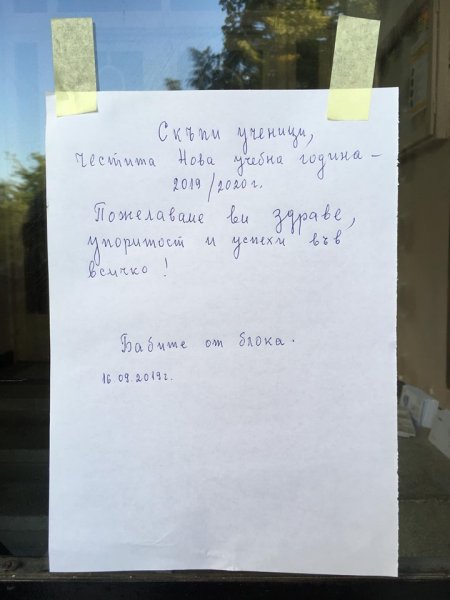 Скъпи ученици,
Честита Нова учебна година –
2019/2020г.
Пожелаваме ви здраве,
упоритост и успехи във
всичко!
Бабите от блока.
16.09.2019г.